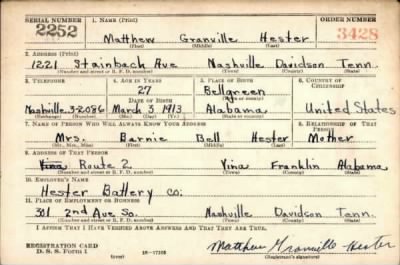 SERIAL NUMBER 1. NAME (Print) ORDER NUMBER
2252 Matthew Granville Hester 3428
(First) (Middle) (Last)
2. ADDRESS (Print)
1221 Stainback Ave Nashville Davidson Tenn.
(Number and street or R. F. D. number) (Town) (County) (State)
3. TELEPHONE 4. AGE IN YEARS 5. PLACE OF BIRTH 6. COUNTRY OF CITIZENSHIP
27 Bellgreen
DATE OF BIRTH (Town or county)
Nashville 3-2086 March 3, 1913 Alabama United States
(Exchange) (Number) (Mo.) (Day) (Yr.) (State or country)
7. NAME OF PERSON WHO WILL ALWAYS KNOW YOUR ADDRESS 8. RELATIONSHIP OF THAT PERSON
Mrs. Barnie Bell Hester Mother
(Mr., Mrs., Miss) (First) (Middle) (Last)
9. ADDRESS OF THAT PERSON
Vina Route 2 Vina Franklin Alabama
(Number and street or R. F. D. number) (Town) (County) (State)
10. EMPLOYER'S NAME
Hester Battery Co.
11. PLACE OF EMPLOYMENT OR BUSINESS
301 2nd Ave So. Nashville Davidson Tenn.
(Number and street or R. F. D. number) (Town) (County) (State)
I AFFIRM THAT I HAVE VERIFIED ABOVE ANSWERS AND THAT THEY ARE TRUE.
REGISTRATION CARD
D. S. S. Form 1 Matthew Granville Hester
(Registrant's signature)